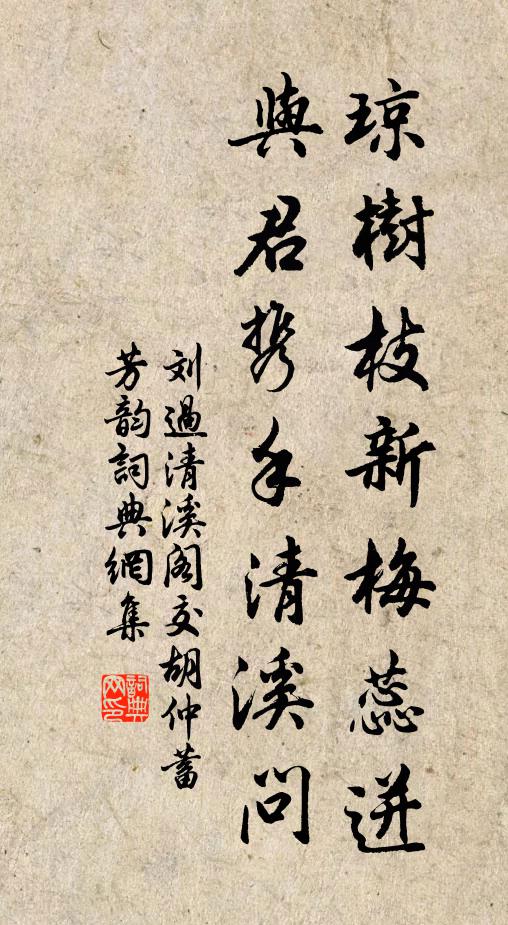 琼樹枝新梅蕊迸
與君携手清溪问
刘過清溪阁交胡仲蓄
芳韵詞典網集
詞典网印